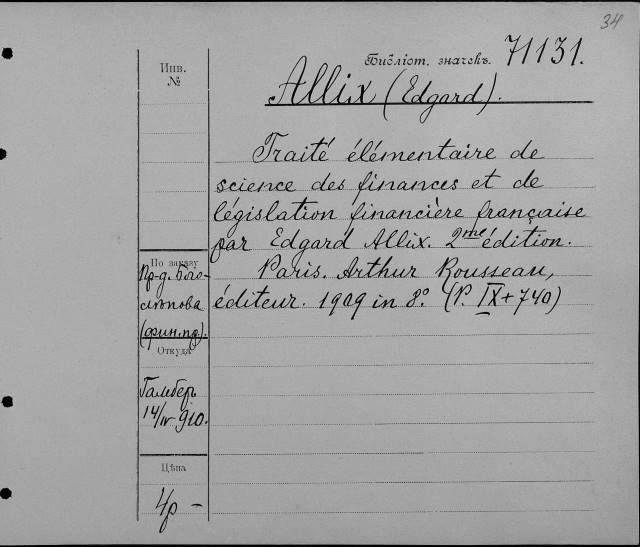 34
Библіот. значекъ. 71131.
Инв.
№
Allix (Edgard).
Traité élémentaire de
science des finances et de
législation financière française
par Edgard Allix. 2me édition.
Paris. Arthur Rousseau,
éditeur. 1909 in 8.° (P. IX+740)
По заказу
Пр-д. Бого
лѣпова
(фин.пр.).
Откуда
Гамбер
14/IV 910.
Цѣна
4р –